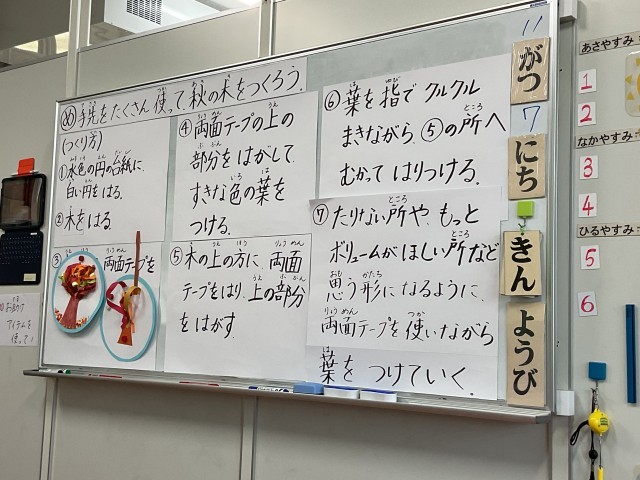 ㋱手先をたくさん使って、秋の木をつくろう。
(つくり方)
①水色の円の台紙に、
白い円をはる。
②木をはる。
③
両面テープを
④両面テープの上の
部分をはがして、
すきな色の葉を
つける。
⑤木の上の方に両面
テープをはり、上の部分
をはがす。
⑥葉を指でクルクル
まきながら、⑤の所へ
むかってはりつける。
⑦たりない所や、もっと
ボリュームがほしい所など
思う形になるように、
両面テープを使いながら
葉をつけていく。
11
がつ
7
にち
きん
ようび
あさやすみ
1
2
なかやすみ
3
4
ひるやすみ
5
6
アイテムを
使って!